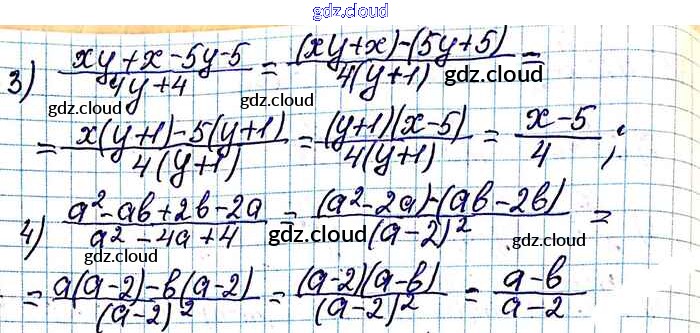 gdz.cloud
3) (xy+x-5y-5)/(4y+4) = ((xy+x)-(5y+5))/(4(y+1)) =
gdz.cloud gdz.cloud
= (x(y+1)-5(y+1))/(4(y+1)) = ((y+1)(x-5))/(4(y+1)) = (x-5)/4;
gdz.cloud gdz.cloud
4) (a²-ab+2b-2a)/(a²-4a+4) = ((a²-2a)-(ab-2b))/((a-2)²) =
gdz.cloud gdz.cloud
= (a(a-2)-b(a-2))/((a-2)²) = ((a-2)(a-b))/((a-2)²) = (a-b)/(a-2)
gdz.cloud gdz.cloud